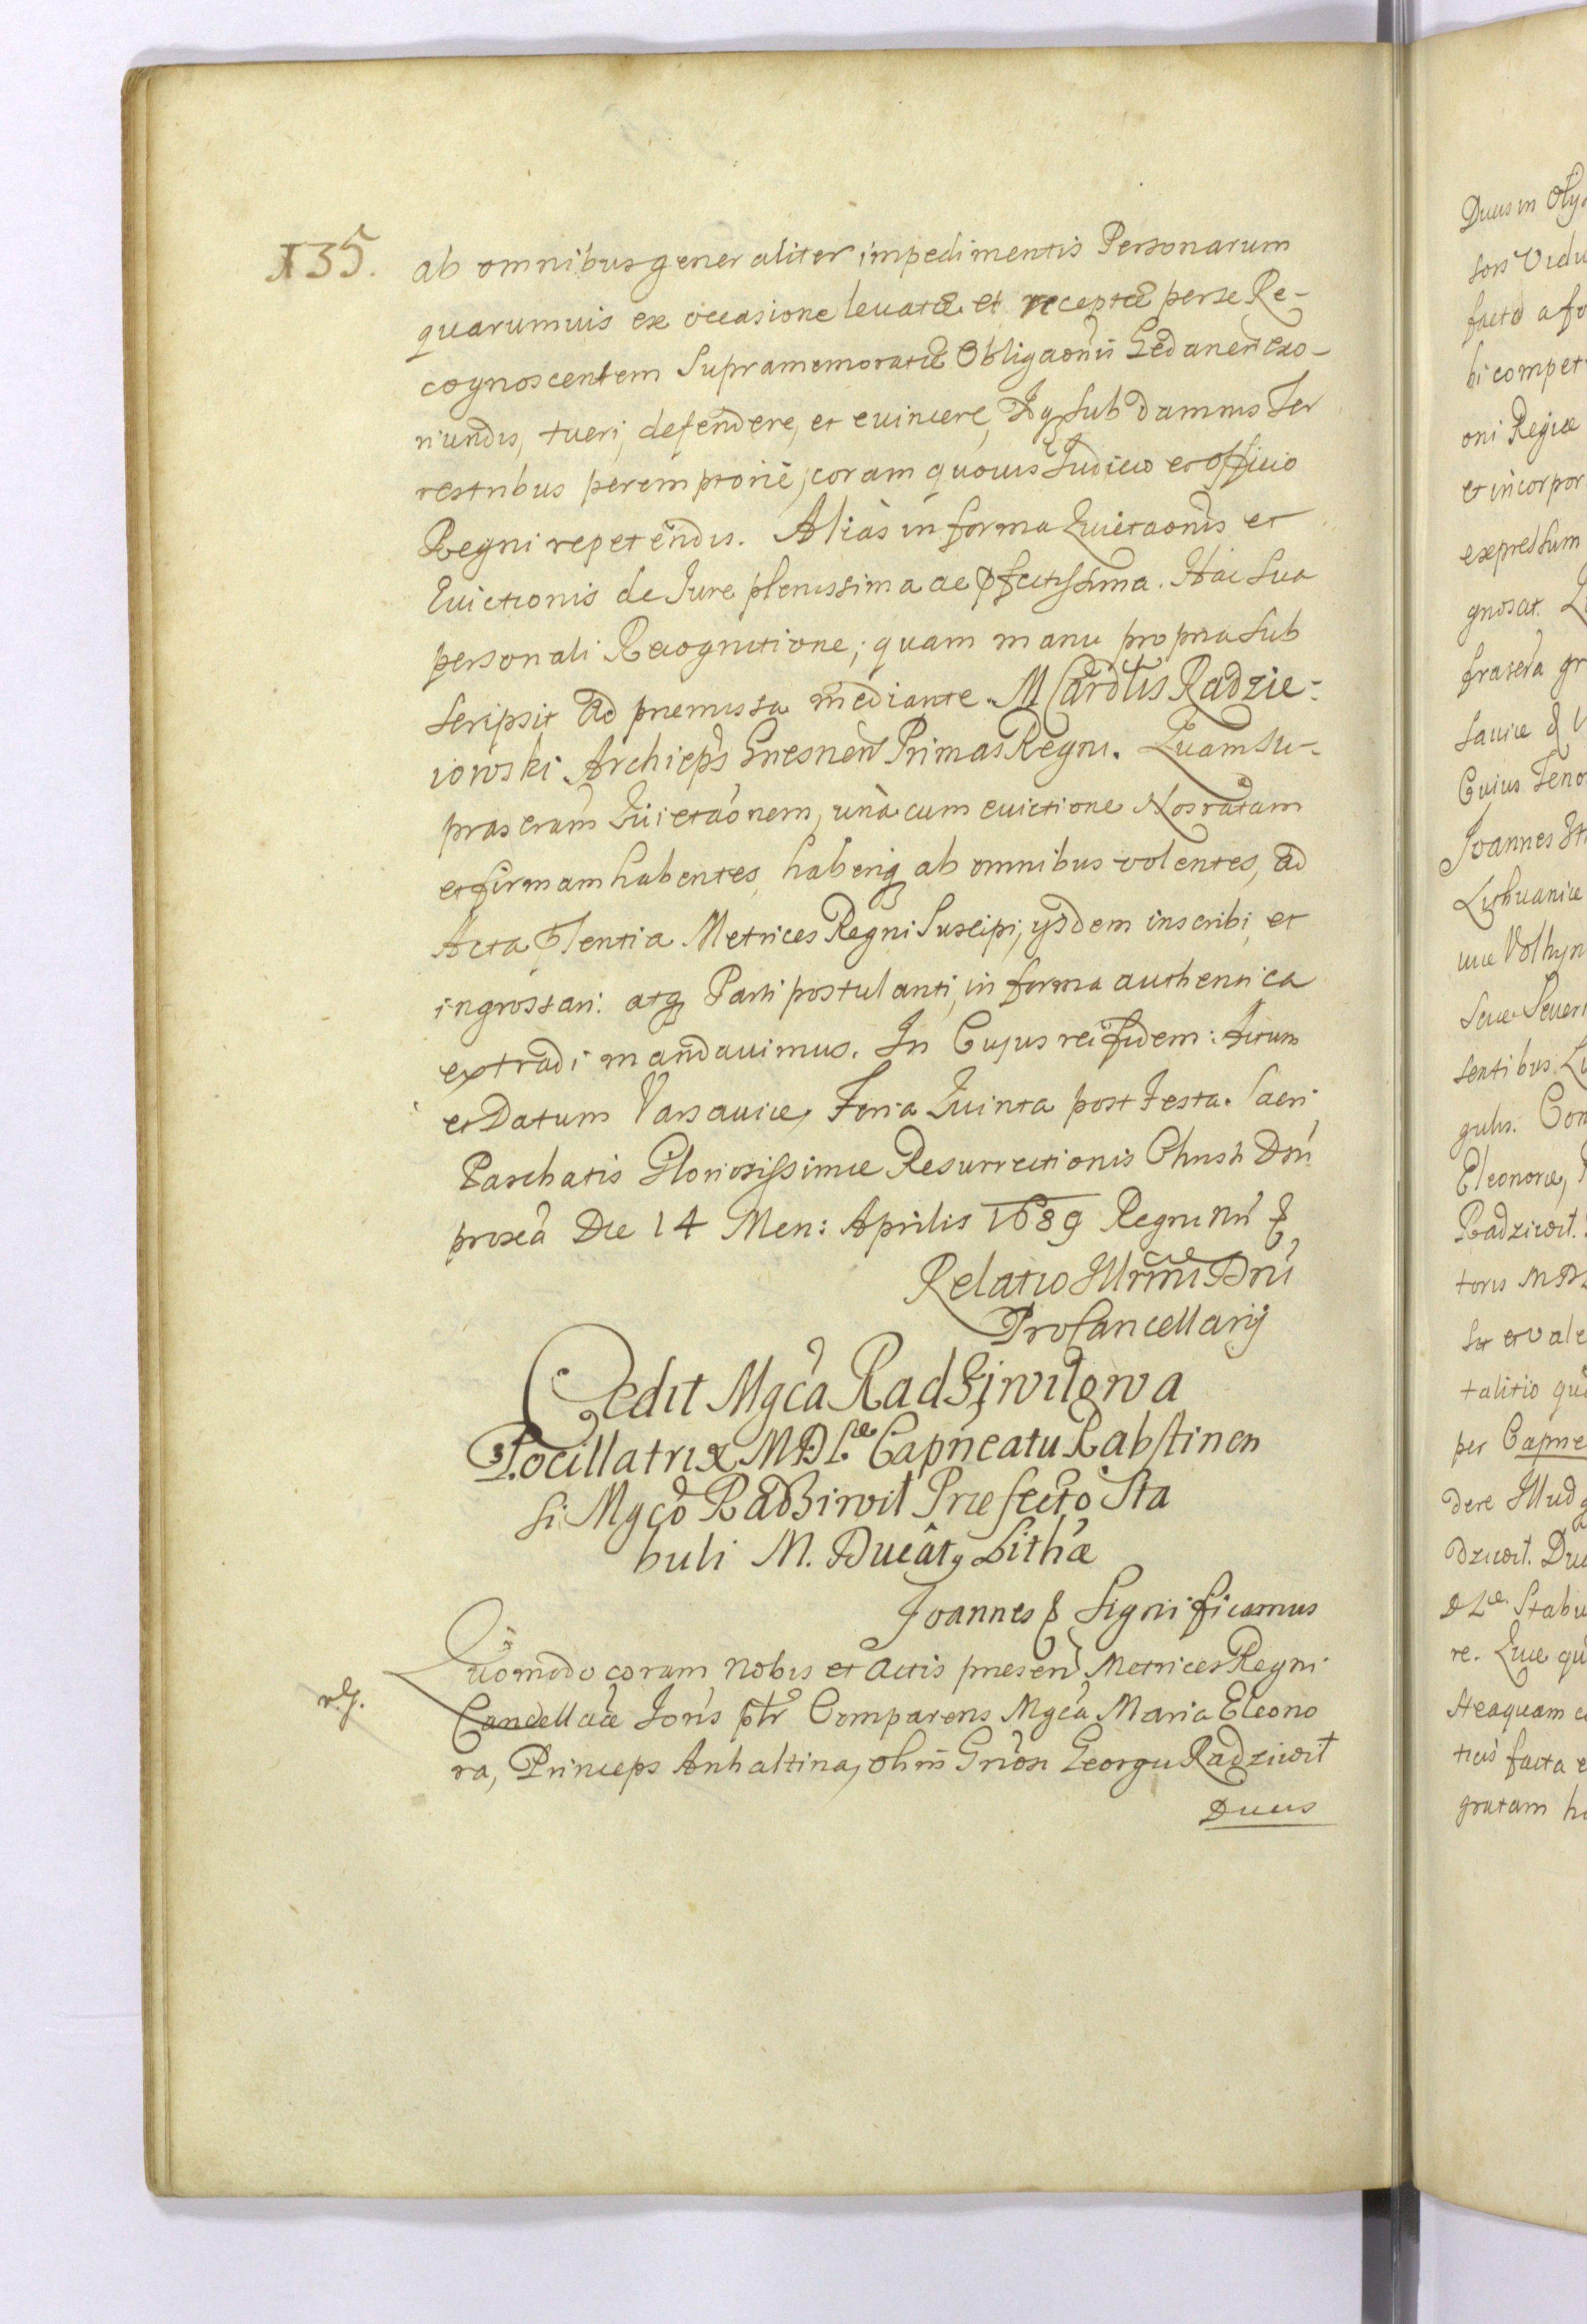 135.
ab omnibus generaliter impedimentis Personarum
quarumuis ex occasione levatæ et receptæ per se Re-
cognoscentem Supramemoratæ Obligaõnis Gedanen̄ exo-
riundis, tueri, defendere, et evincere, Idq; sub damnis Ter
restribus peremptoriè, coram quovis Judicio et officio
Regni repetendis. Aliàs in forma Quietaonis et
Evictionis de Jure plenissima ac pfectissima. Hac Sua
personali Recognitione; quam manu propria sub
scripsit ad præmissa mediante. M Cardlis Radzie-
iowski Archieps Gnesnen Primas Regni. Quam Su-
prascram Quietaonem, unà cum evictione Nos ratam
et firmam habentes, haberiq; ab omnibus volentes, ad
Acta Pñtia Metrices Regni Suscipi, ysdem inscribi, et
ingrossari: atq; Parti postulanti, in forma authentica
extradi mandavimus. In Cujus rei fidem: Actum
et Datum Varsaviæ, Feria Quinta post Festa Sacri
Paschatis Gloriosissimæ Resurrectionis Christi Dñi
proxa Die 14 Men: Aprilis 1689 Regni nri &
Relatio Illrmi Dni
ProCancellarij
Cedit Mgca Radziwiłowa
Pocillatrix M.D.L.æ Capneatu Rabstinen
si Mgco Radziwił Præfecto Sta
buli M. Ducatq Lithæ
Joannes & Significamus
Quomodo coram Nobis et Actis præsen Metrices Regni
rlg.
Cancellariæ Joris ptr Comparens Mgca Maria Eleono
ra, Princeps Anhaltina, olim Grosi Georgii Radziwił
Ducis
Ducis in Oly
facto a fo
bi compet
oni Regiæ
et incorpor
expressum
gnosat.
Cuius Teno
Joannes
Lithuaniæ
uiæ Volhyn
sentibus
Eleonoræ,
Radziwił.
toris M.D.
talitio
per Capne
dere Illud
dziwił. Du
DLæ Stabu
re. Quæ
ticis facta e
gratam